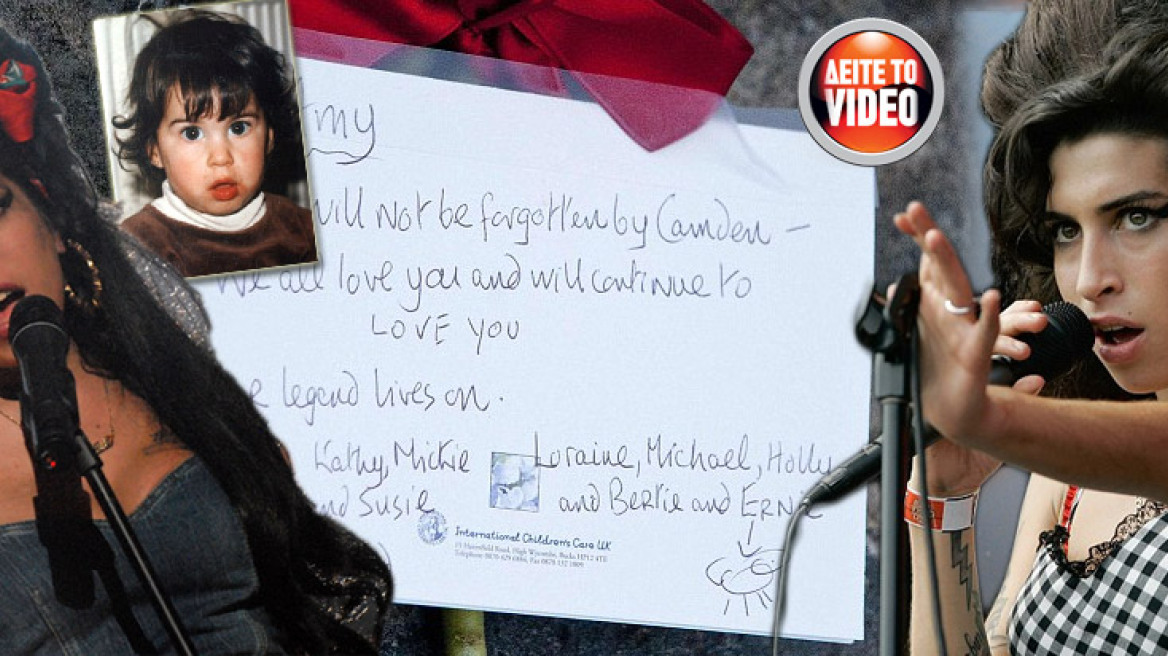 ΔΕΙΤΕ ΤΟ
VIDEO
my
will not be forgotten by Camden –
We all love you and will continue to
LOVE YOU
legend lives on.
Kathy, Mickie
and Susie
Loraine, Michael, Holly
and Bertie and ERNIE
International Children's Care UK
Telephone 0870 429 6066, Fax 0870 132 1009